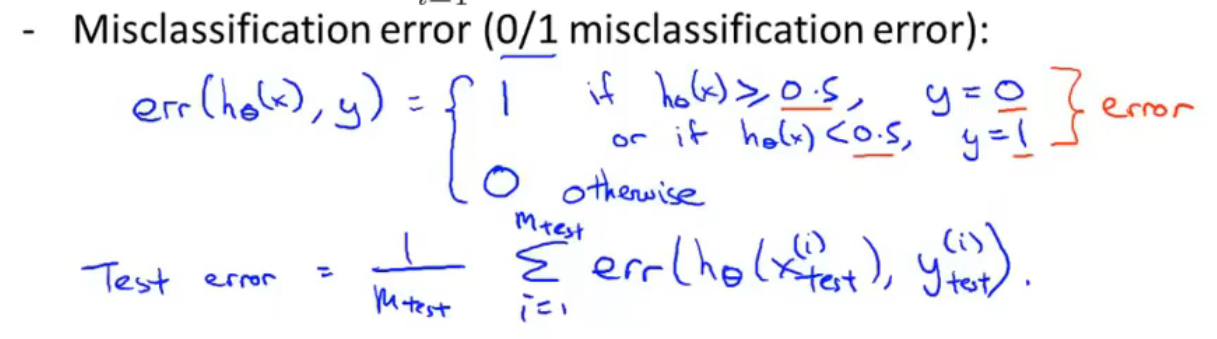 - Misclassification error (0/1 misclassification error):
err(hθ(x), y) = { 1 if hθ(x) ≥ 0.5, y = 0 } error
or if hθ(x) < 0.5, y = 1
0 otherwise
Test error = 1/m_test Σ_{i=1}^{m_test} err(hθ(x_test^(i)), y_test^(i)).